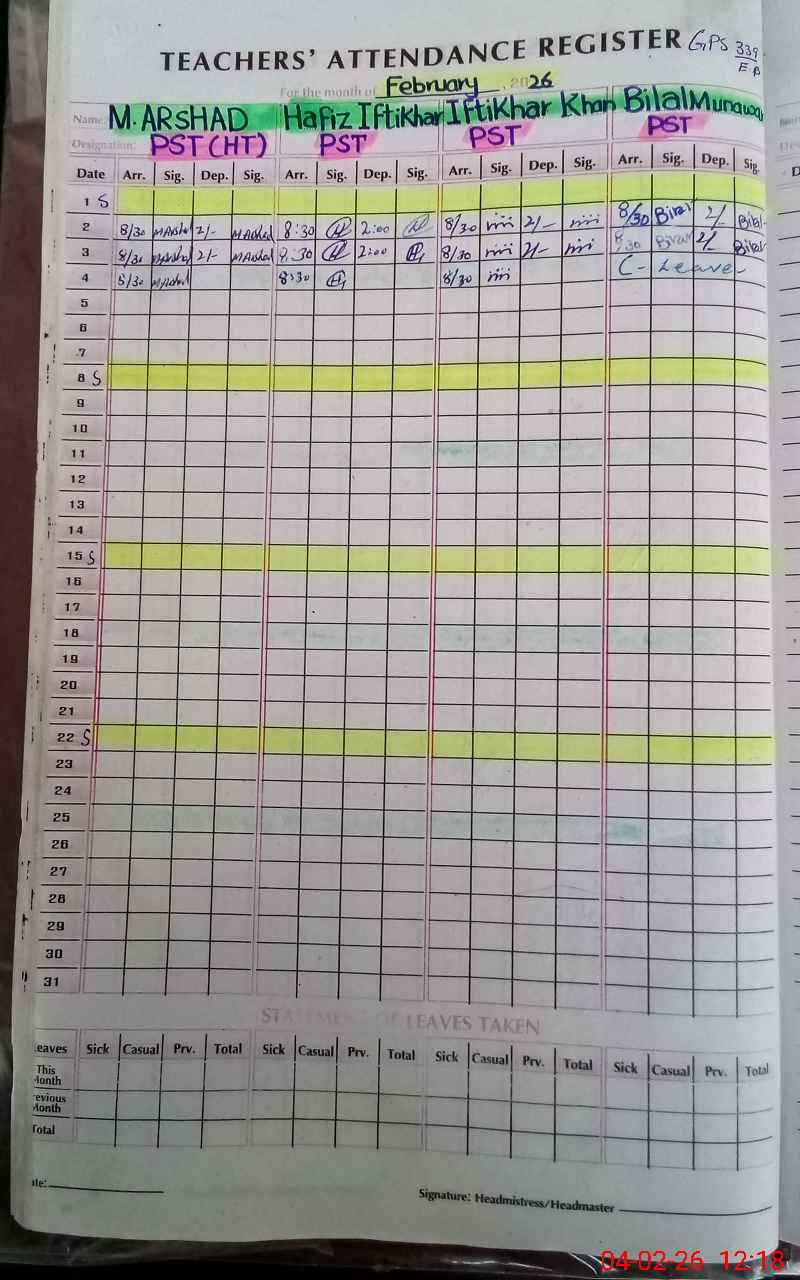 TEACHERS' ATTENDANCE REGISTER GPS 339/EB
For the month of February, 2026
Name: M. ARSHAD Hafiz Iftikhar Iftikhar Khan Bilal Munawar
Designation: PST (HT) PST PST PST
Date Arr. Sig. Dep. Sig. Arr. Sig. Dep. Sig. Arr. Sig. Dep. Sig. Arr. Sig. Dep. Sig.
1 S
2 8/30 MArshad 2/- MArshad 8:30 2:00 8/30 2/- 8/30 Bilal 2/ Bilal
3 8/30 MArshad 2/- MArshad 8:30 2:00 8/30 2/- 8/30 Bilal 2/ Bilal
4 8/30 MArshad 8:30 8/30 C- Leave
5
6
7
8 S
9
10
11
12
13
14
15 S
16
17
18
19
20
21
22 S
23
24
25
26
27
28
29
30
31
STATEMENT OF LEAVES TAKEN
eaves Sick Casual Prv. Total Sick Casual Prv. Total Sick Casual Prv. Total Sick Casual Prv. Total
This
Month
revious
Month
Total
ate:
Signature: Headmistress/Headmaster
04-02-26 12:18